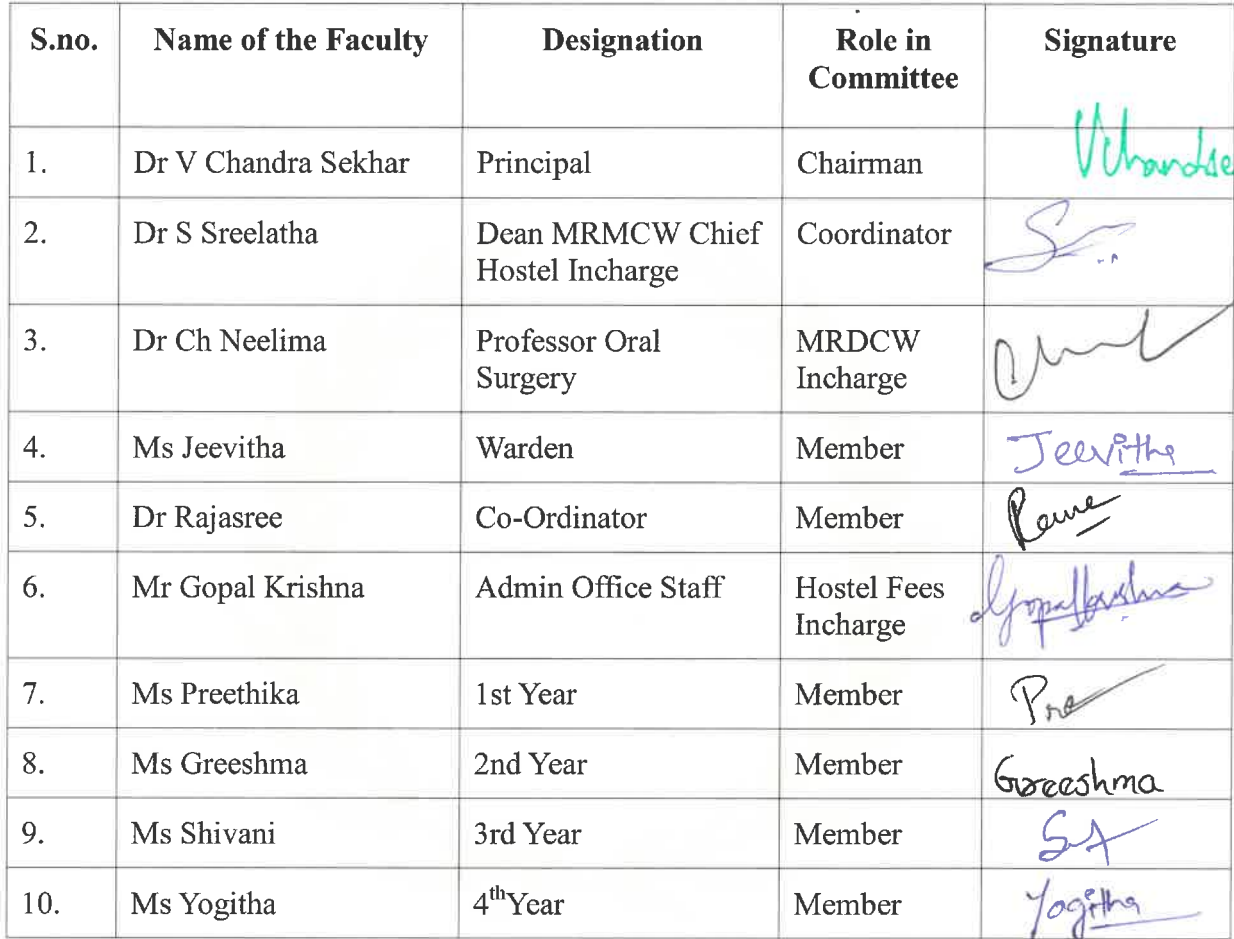 S.no. Name of the Faculty Designation Role in Committee Signature
1. Dr V Chandra Sekhar Principal Chairman
2. Dr S Sreelatha Dean MRMCW Chief Hostel Incharge Coordinator
3. Dr Ch Neelima Professor Oral Surgery MRDCW Incharge
4. Ms Jeevitha Warden Member Jeevitha
5. Dr Rajasree Co-Ordinator Member
6. Mr Gopal Krishna Admin Office Staff Hostel Fees Incharge Gopalkrishna
7. Ms Preethika 1st Year Member Pre
8. Ms Greeshma 2nd Year Member Greeshma
9. Ms Shivani 3rd Year Member
10. Ms Yogitha 4thYear Member Yogitha